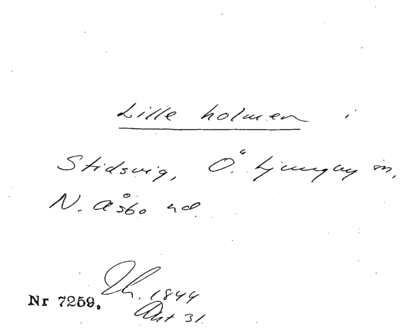 Lille holmen i
Stidsvig, Ö. Ljungby sn,
N. Åsbo hd.
1844
Nr 7259. Akt 31.